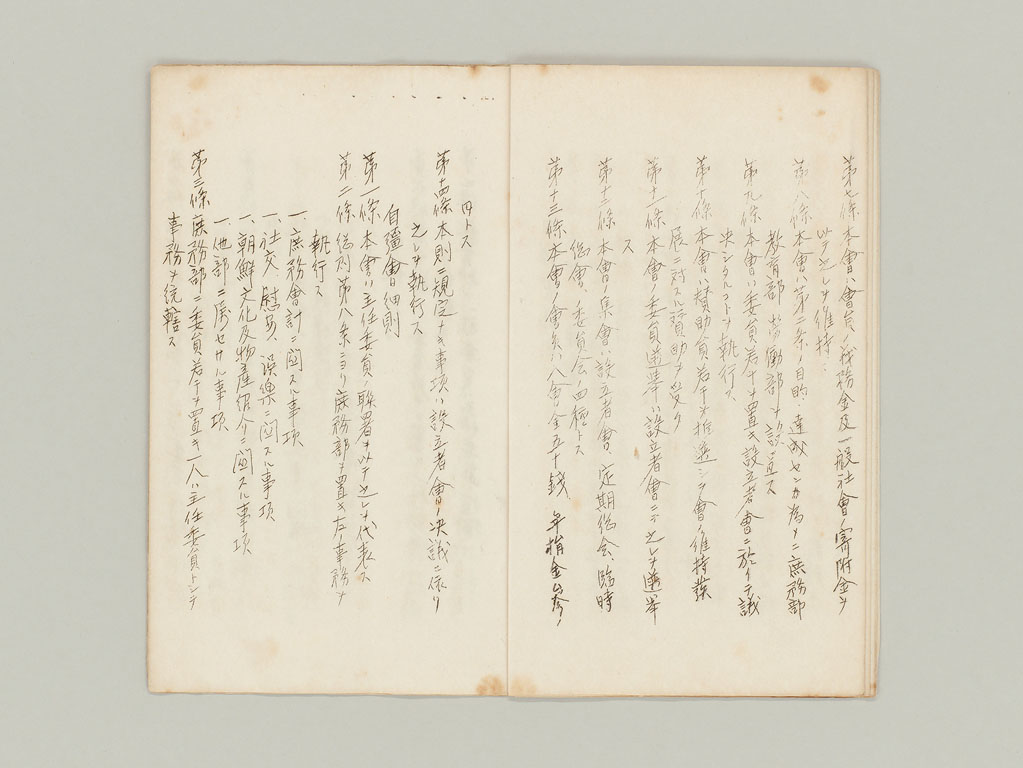 第七條 本會ハ會員ノ義務金及一般社會ノ寄附金ヲ
以テ之レヲ維持ス
第八條 本會ハ第二条ノ目的ヲ達成センカ為メニ庶務部
教育部、労働部ヲ設置ス
第九條 本會ハ委員若干ヲ置キ設立者會ニ於イテ議
決シタルコトヲ執行ス
第十條 本會ハ賛助員若干ヲ推選シテ會ノ維持発
展ニ対スル賛助ヲ受ク
第十一條 本會ノ委員選挙ハ設立者會ニテ之レヲ選挙
ス
第十二條 本會ノ集會ハ設立者會、定期総会、臨時
総會、委員会ノ四種トス
第十三條 本會ノ會末ハ入會金五十銭 年捐金ハ参
円トス
第十四條 本則ニ規定ナキ事項ハ設立者會ノ決議ニ依リ
之レヲ執行ス
自彊會細則
第一條 本會ハ主任委員ノ聯署ヲ以テ之レヲ代表ス
第二條 総則第八条ニヨリ庶務部ヲ置キ左ノ事務ヲ
執行ス
一、庶務會計ニ関スル事項
一、社交、慰安、娯樂ニ関スル事項
一、朝鮮文化及物産紹介ニ関スル事項
一、他部ニ属セサル事項
第三條 庶務部ニ委員若干ヲ置キ一人ハ主任委員トシテ
事務ヲ統轄ス